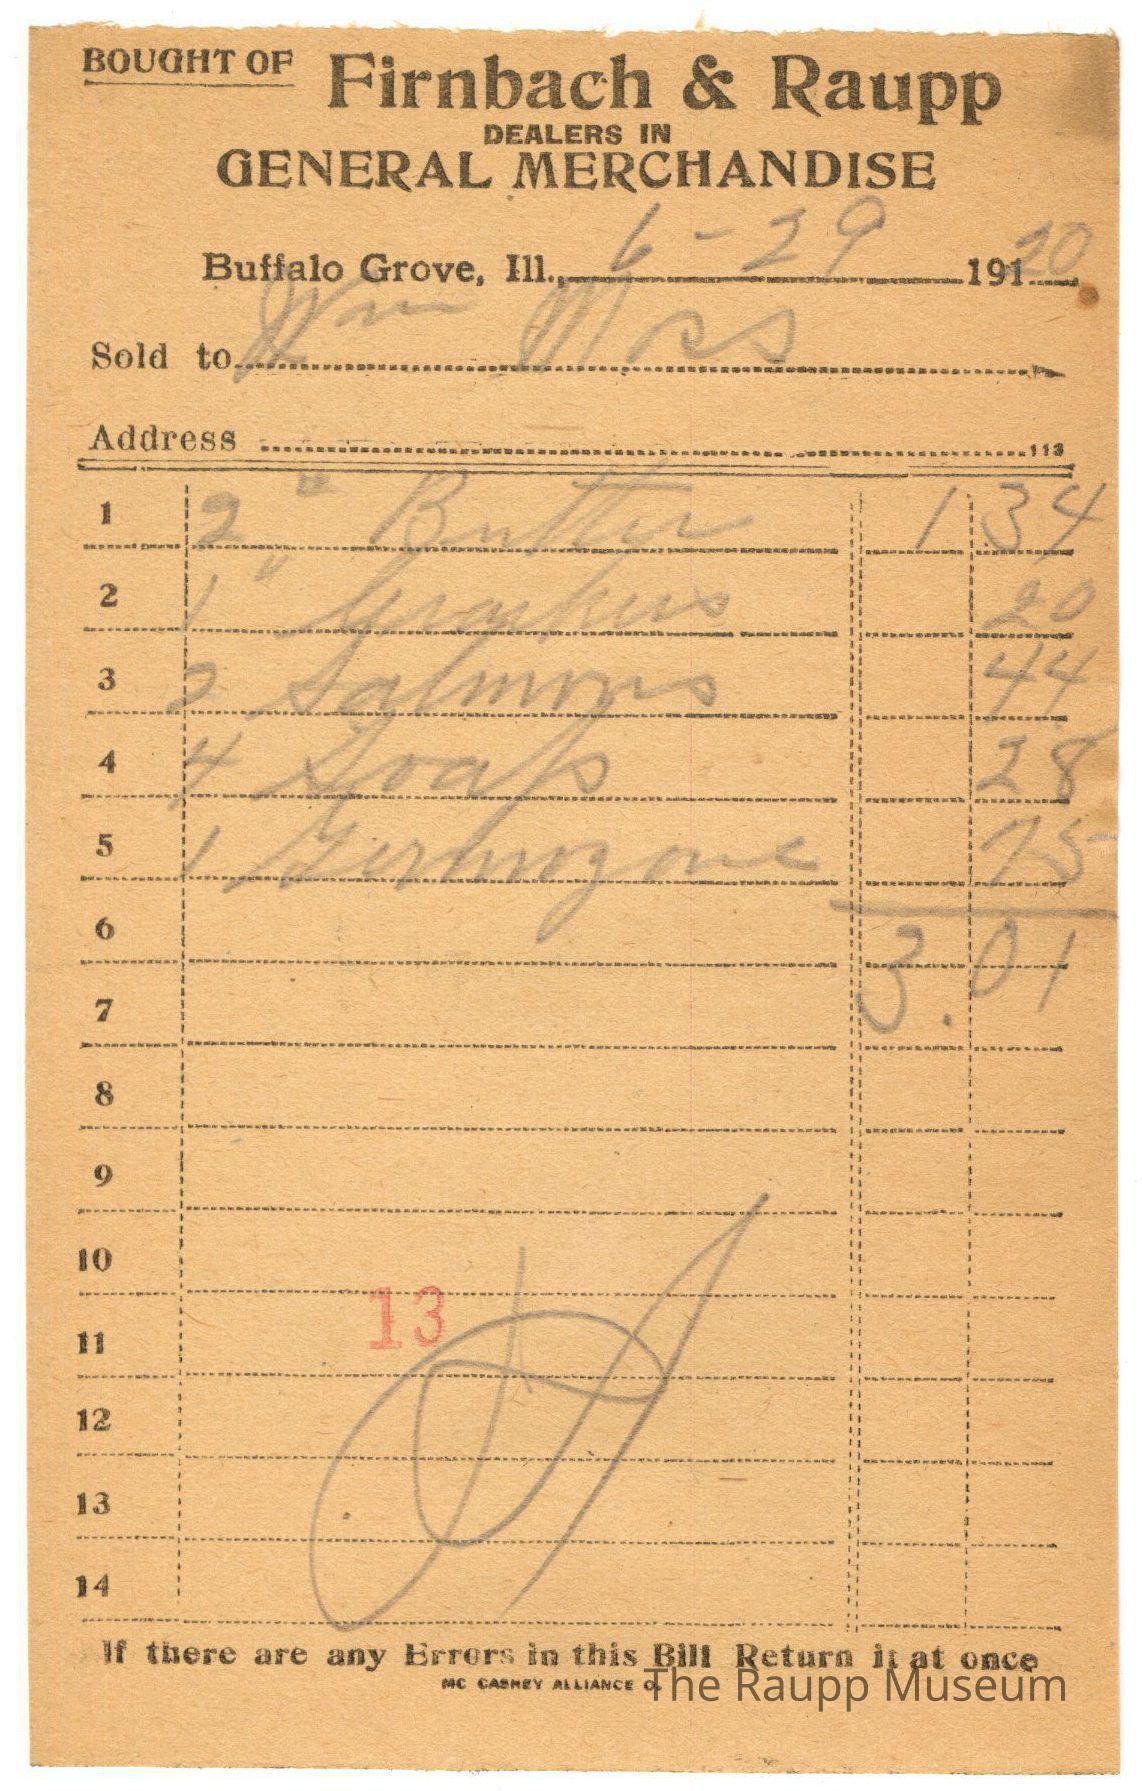 BOUGHT OF Firnbach & Raupp
DEALERS IN
GENERAL MERCHANDISE
Buffalo Grove, Ill., 6-29 191 20
Sold to Wm
Address 113
1 2 " Butter 1 34
2 1 " Crackers 20
3 2 Salmons 44
4 4 Soap 28
5 1 Germozone 75
6 3.01
7
8
9
10
13
11
12
13
14
If there are any Errors in this Bill Return it at once
MC CASKEY ALLIANCE O.
The Raupp Museum